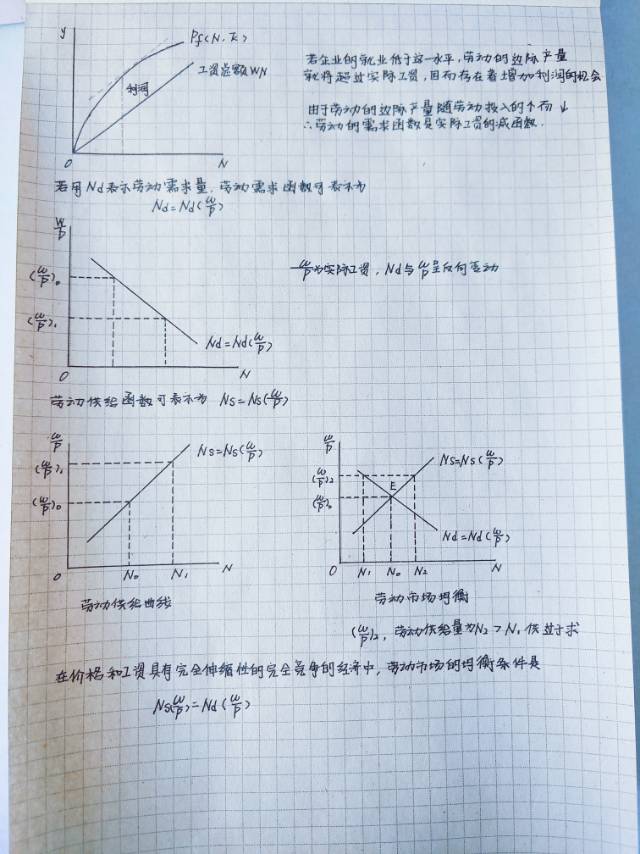 y
Pf(N·K̄)
工资总额WN
利润
O
N
若企业的就业低于这一水平,劳动的边际产量
就将超过实际工资,因而存在着增加利润的机会
由于劳动的边际产量随劳动投入的个而↓
∴劳动的需求函数是实际工资的减函数.
若用Nd表示劳动需求量,劳动需求函数可表示为
Nd=Nd(W/P)
W/P
(W/P)₀
(W/P)₁
Nd=Nd(W/P)
O
N
W/P为实际工资,Nd与W/P呈反向变动
劳动供给函数可表示为 Ns=Ns(W/P)
W/P
(W/P)₁
(W/P)₀
Ns=Ns(W/P)
O
N₀
N₁
N
劳动供给曲线
W/P
(W/P)₂
(W/P)₀
E
Ns=Ns(W/P)
Nd=Nd(W/P)
O
N₁
N₀
N₂
N
劳动市场均衡
(W/P)₂,劳动供给量为N₂>N₁ 供过于求
在价格和工资具有完全伸缩性的完全竞争的经济中,劳动市场的均衡条件是
Ns(W/P)=Nd(W/P)